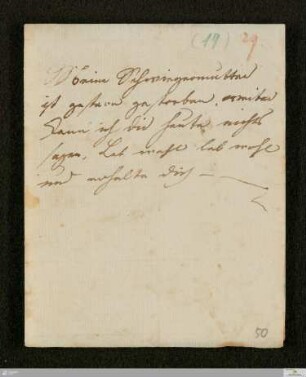 (19) 29
Meine Schwiegermutter
ist gestern gestorben, weiter
kann ich dir heute nichts
sagen. Leb wohl leb wohl
und erhalte dich —
50